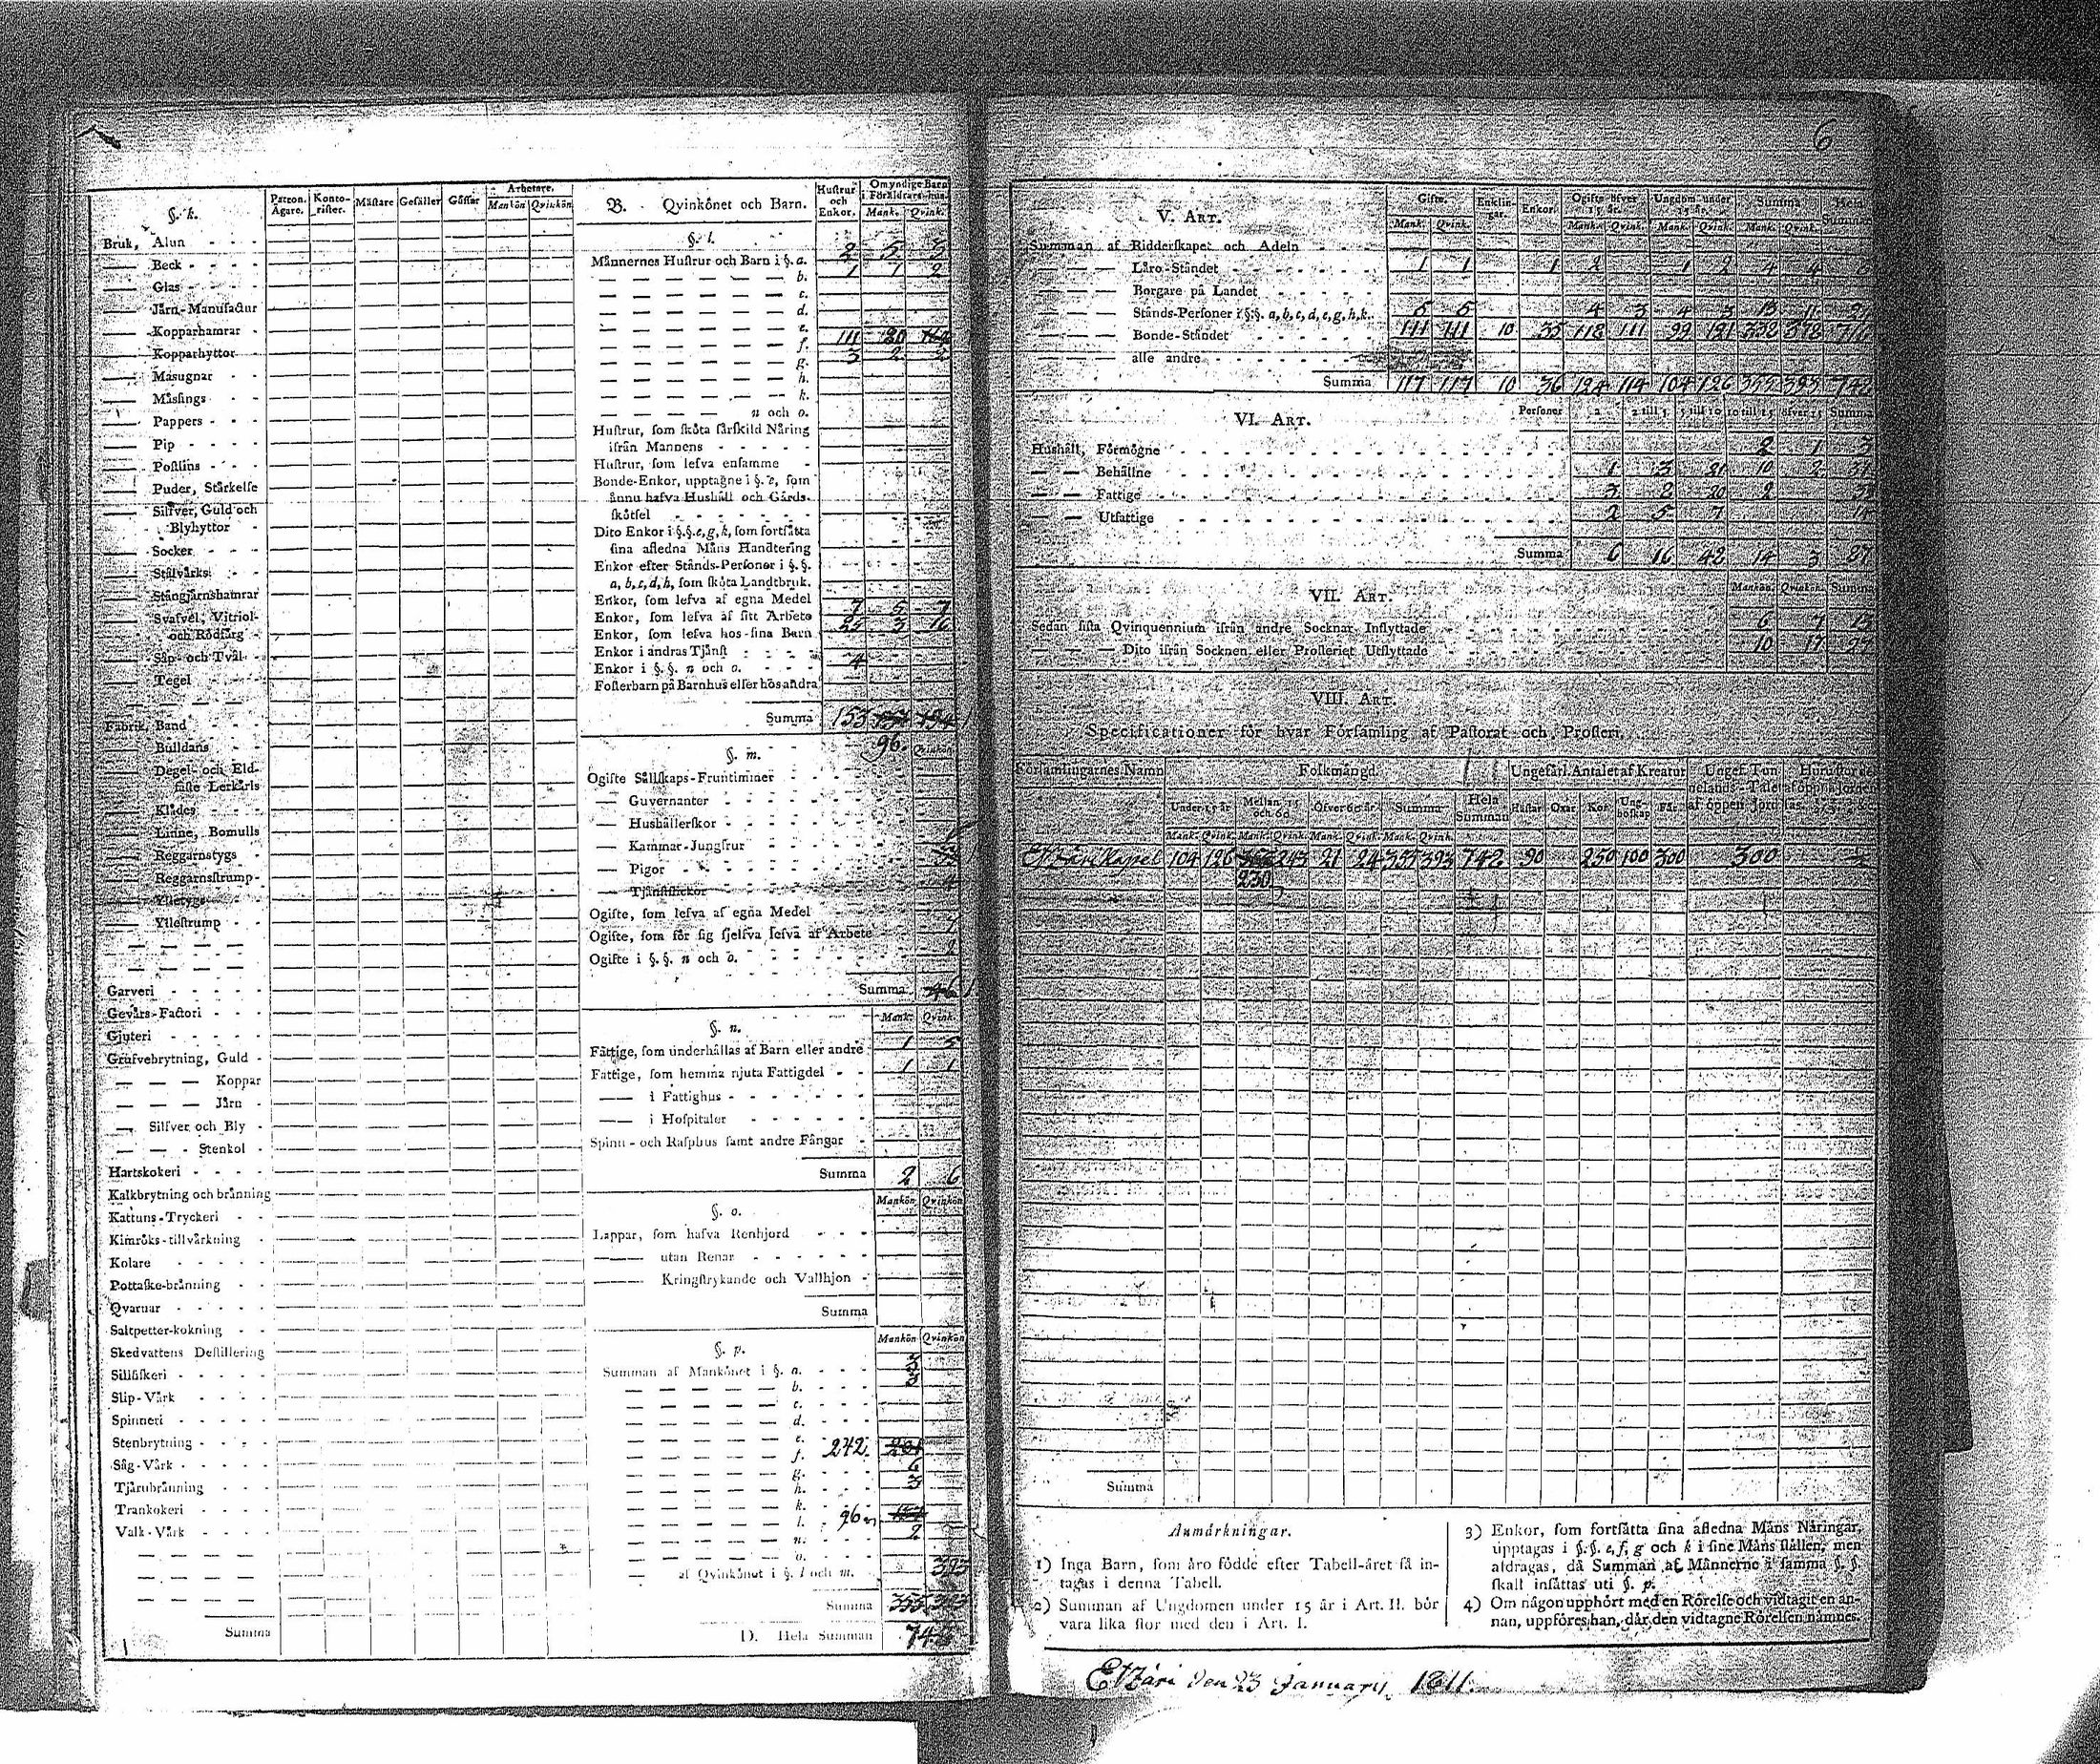 6
§. k.
Patron. Ägare.
Konto-rister.
Mästare
Gesäller
Gossar
Arbetare.
Mankön
Qvinkön
Bruk, Alun
Beck
Glas
Järn-Manufactur
Kopparhamrar
Kopparhyttor
Masugnar
Mässings
Pappers
Pip
Postlins
Puder, Stärkelse
Silfver, Guld och
Blyhyttor
Socker
Stålvärks
Stångjärnshamrar
Svafvel, Vitriol-
och Rödfärg
Såp- och Tvål
Tegel
Fabrik, Band
Bulldans
Degel- och Eld-
faste Lerkärls
Klädes
Linne, Bomulls
Reggarnstygs
Reggarnsstrump
Ylletygs
Yllestrump
Garveri
Gevärs-Factori
Gjuteri
Grufvebrytning, Guld
Koppar
Järn
Silfver och Bly
Stenkol
Hartskokeri
Kalkbrytning och bränning
Kattuns-Tryckeri
Kimröks-tillvärkning
Kolare
Pottaske-bränning
Qvarnar
Saltpetter-kokning
Skedvattens Destillering
Sillfiskeri
Slip-Värk
Spinneri
Stenbrytning
Såg-Värk
Tjärubränning
Trankokeri
Valk-Värk
Summa
B. Qvinkönet och Barn.
Hustrur och Enkor.
Omyndige Barn i Föräldrars hus.
Mank. Qvink.
§. l.
Männernes Hustrur och Barn i §. a. 2 5 3
b. 1 1 2
c.
d.
e.
f. 111 80
g. 3 2 2
h.
k.
n och o.
Hustrur, som sköta särskild Näring
ifrån Mannens
Hustrur, som lefva ensamme
Bonde-Enkor, upptagne i §. e, som
ännu hafva Hushåll och Gårds-
skötsel
Dito Enkor i §.§. e, g, k, som fortsätta
sina afledna Mäns Handtering
Enkor efter Stånds-Personer i §.§.
a, b, c, d, h, som sköta Landtbruk.
Enkor, som lefva af egna Medel 7 5 7
Enkor, som lefva af sitt Arbete
Enkor, som lefva hos sina Barn
Enkor i andras Tjänst
Enkor i §.§. n och o. 4
Fosterbarn på Barnhus eller hos andra
Summa 153
96.
§. m.
Qvinkön
Ogifte Sällskaps-Fruntimmer
Guvernanter
Hushållerskor
Kammar-Jungfrur
Pigor
Tjänstflickor
Ogifte, som lefva af egna Medel
Ogifte, som för sig sjelfva lefva af Arbete
Ogifte i §.§. n och o.
Summa 46
§. n.
Mank. Qvink.
Fattige, som underhållas af Barn eller andre 1 5
Fattige, som hemma njuta Fattigdel 1 1
i Fattighus
i Hospitaler
Spinn- och Rasphus samt andre Fångar
Summa 2 6
§. o.
Mankön Qvinkön
Lappar, som hafva Renhjord
utan Renar
Kringstrykande och Vallhjon
Summa
§. p.
Mankön Qvinkön
Summan af Mankönet i §. a. 3
b.
c.
d.
e.
f. 242
g. 6
h. 3
k.
l. 96
n. 2
o.
af Qvinkönet i §. l och m. 393
Summa 355 393
D. Hela Summan
V. Art.
Gifte. Enklingar. Enkor. Ogifte öfver 15 år. Ungdom under 15 år. Summa Hela Summan
Mank. Qvink. Mank. Qvink. Mank. Qvink. Mank. Qvink.
Summan af Ridderskapet och Adeln
Läro-Ståndet 1 1 1 2 1 2 4 4 8
Borgare på Landet
Stånds-Personer i §.§. a, b, c, d, e, g, h, k. 5 5 4 3 4 3 13 11
Bonde-Ståndet 111 111 10 35 118 111 99 121
alle andre
Summa 117 117 10 36 124 114 104 126 355 393 742
VI. Art.
Personer 2 2 till 5 5 till 10 10 till 15 öfver 15 Summa
Hushåll, Förmögne 2 1 3
Behållne 1 3 21 10 2 37
Fattige
Utfattige 2 5 7 14
Summa 6 16 42 14 3
VII. Art.
Mankön. Qvinkön. Summa
Sedan sista Qvinquennium ifrån andre Socknar Inflyttade 6 7 13
Dito ifrån Socknen eller Prosteriet Utflyttade 10 17 27
VIII. Art.
Specificationer för hvar Församling af Pastorat och Prosteri.
Församlingarnes Namn
Folkmängd.
Ungefärl. Antalet af Kreatur
Under 15 år
Mellan 15 och 60
Öfver 60 år
Summa
Hela Summan
Hästar Oxar Kor Ungboskap Får
Mank. Qvink. Mank. Qvink. Mank. Qvink. Mank. Qvink.
Etzäri Kapel 104 126 243 21 24 355 393 742 90 250 100 300 300
230
Summa
Anmärkningar.
1) Inga Barn, som äro födde efter Tabell-året få in-
tagas i denna Tabell.
2) Summan af Ungdomen under 15 år i Art. II. bör
vara lika stor med den i Art. I.
3) Enkor, som fortsätta sina afledna Mäns Näringar,
upptagas i §.§. e, f, g och k i sine Mäns ställen; men
afdragas, då Summan af Männerne i samma §.§.
skall insättas uti §. p.
4) Om någon upphört med en Rörelse och vidtagit en an-
nan, uppföres han, där den vidtagne Rörelsen nämnes.
Etzäri den 23 January 1811.